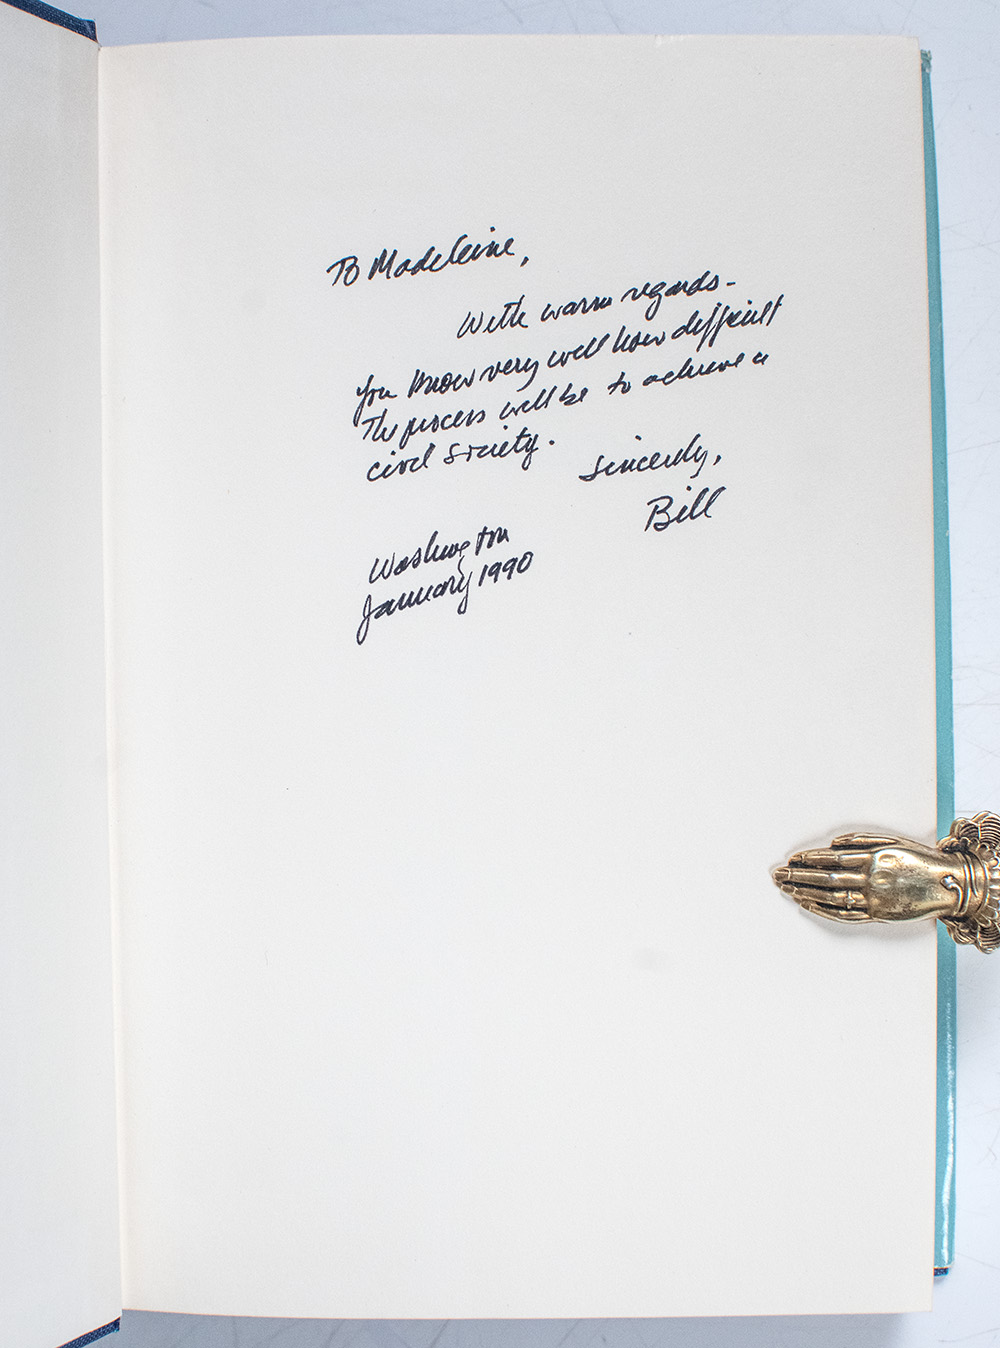 To Madeleine,
With warm regards-
You know very well how difficult
The process will be to achieve a
civil society.
Sincerely,
Bill
Washington
January 1990